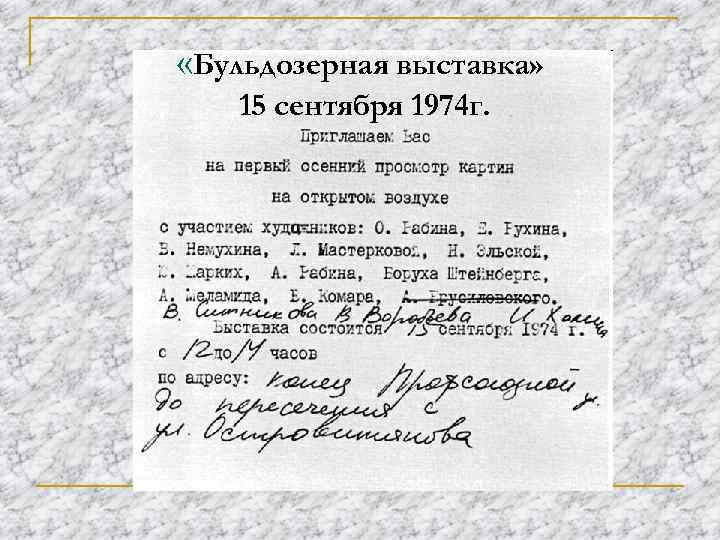 «Бульдозерная выставка»
15 сентября 1974г.
Приглашаем Вас
на первый осенний просмотр картин
на открытом воздухе
с участием художников: О. Рабина, Е. Рухина,
В. Немухина, Л. Мастерковой, Н. Эльской,
Ю. Жарких, А. Рабина, Боруха Штейнберга,
А. Меламида, В. Комара, А. Брусиловского.
В. Ситникова В Воробьева И Холина
Выставка состоится 15 сентября 1974 г.
с 12 до 14 часов
по адресу: конец Профсоюзной ул.
до пересечения с
ул. Островитянова